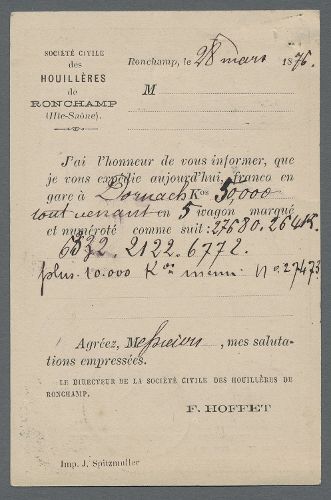 SOCIÉTÉ CIVILE
des
HOUILLÈRES
de
RONCHAMP
(Hte-Saône).
Ronchamp, le 28 mars 1876.
M
J'ai l'honneur de vous informer, que
je vous expédie aujourd'hui, franco en
gare à Dornach Kos 50,000
tout venant en 5 wagon marqué
et numéroté comme suit : 27680. 26415.
6532. 2122. 6772.
plus 10.000 Kos menu. No 27473
Agréez, Messieurs, mes saluta-
tions empressées.
LE DIRECTEUR DE LA SOCIÉTÉ CIVILE DES HOUILLÈRES DE
RONCHAMP.
F. HOFFET
Imp. J. Spitzmuller